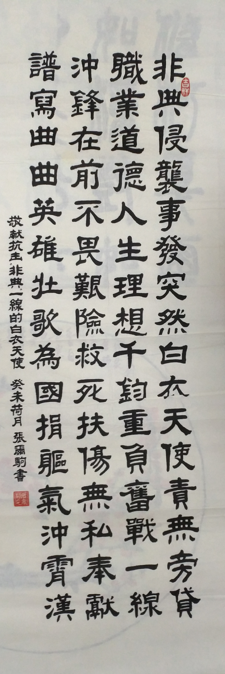 非典侵襲事發突然白衣天使責無旁貸
職業道德人生理想千鈞重負奮戰一線
沖鋒在前不畏艱險救死扶傷無私奉獻
譜寫曲曲英雄壯歌為國捐軀氣沖霄漢
敬献抗击非典一線的白衣天使 癸未荷月 張爾駒書